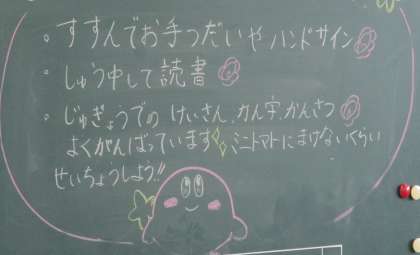 ・すすんでお手つだいやハンドサイン
・しゅう中して読書
・じゅぎょうでのけいさん、かん字、かんさつ
よくがんばっています ミニトマトにまけないくらい
せいちょうしよう!!